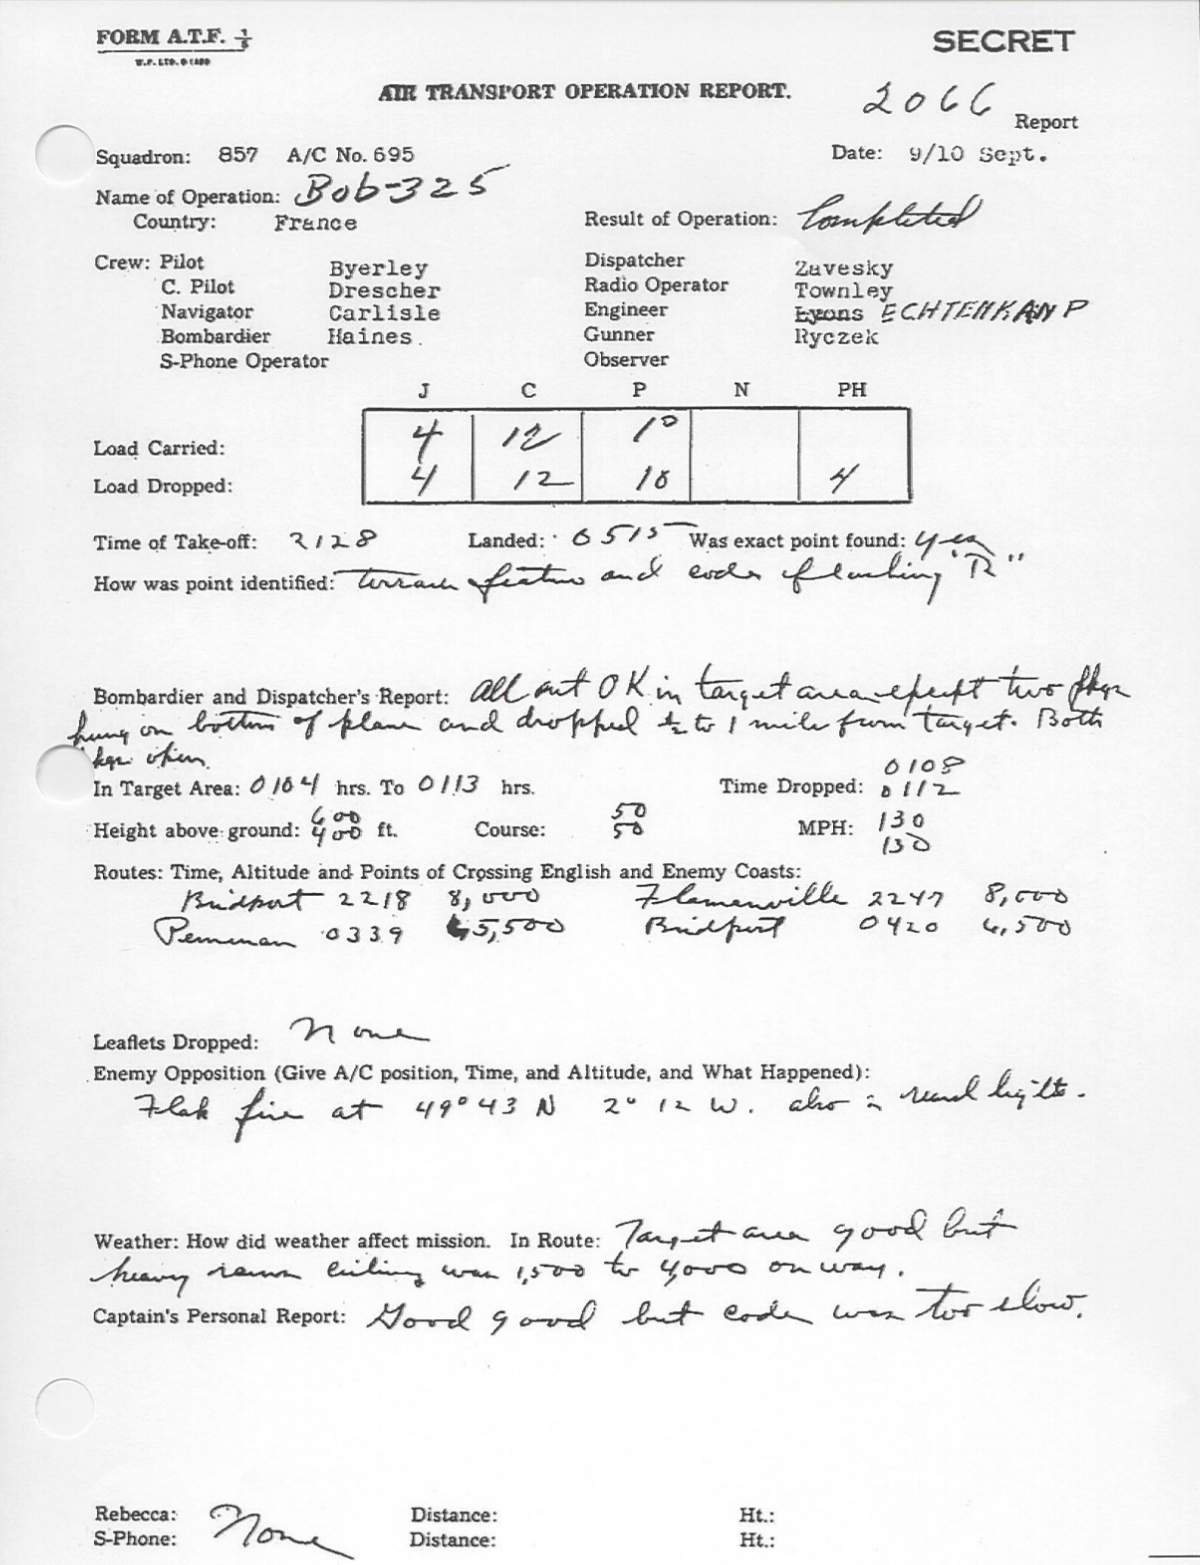 FORM A.T.F. 1/6
SECRET
W.P. LTD.
AIR TRANSPORT OPERATION REPORT.
2066 Report
Squadron: 857 A/C No. 695 Date: 9/10 Sept.
Name of Operation: Bob-325
Country: France Result of Operation: Completed
Crew: Pilot Byerley Dispatcher Zavesky
C. Pilot Drescher Radio Operator Townley
Navigator Carlisle Engineer Lyons ECHTENKANP
Bombardier Haines. Gunner Ryczek
S-Phone Operator Observer
J C P N PH
Load Carried: 4 12 10
Load Dropped: 4 12 10 4
Time of Take-off: 2128 Landed: 0515 Was exact point found: yes
How was point identified: terrain feature and code flashing "R"
Bombardier and Dispatcher's Report: All out OK in target area except two pkgs
hung on bottom of plane and dropped ½ to 1 mile from target. Both
open.
0108
In Target Area: 0104 hrs. To 0113 hrs. Time Dropped: 0112
600 50 130
Height above ground: 400 ft. Course: 50 MPH: 130
Routes: Time, Altitude and Points of Crossing English and Enemy Coasts:
Bridport 2218 8,000 Flamenville 2247 8,000
0339 5,500 Bridport 0420 6,500
Leaflets Dropped: None
Enemy Opposition (Give A/C position, Time, and Altitude, and What Happened):
Flak fire at 49° 43 N 2° 12 W. also lights.
Weather: How did weather affect mission. In Route: Target area good but
heavy ceiling was 1,500 to 4,000 on way.
Captain's Personal Report: Good good but code was too slow.
Rebecca: None Distance: Ht.:
S-Phone: Distance: Ht.: